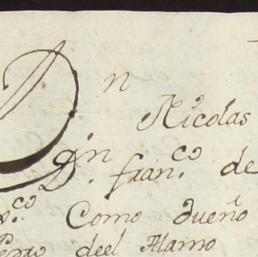 Dn
Nicolas
Dn. Franco. de
xco Como dueño
deel Alamo